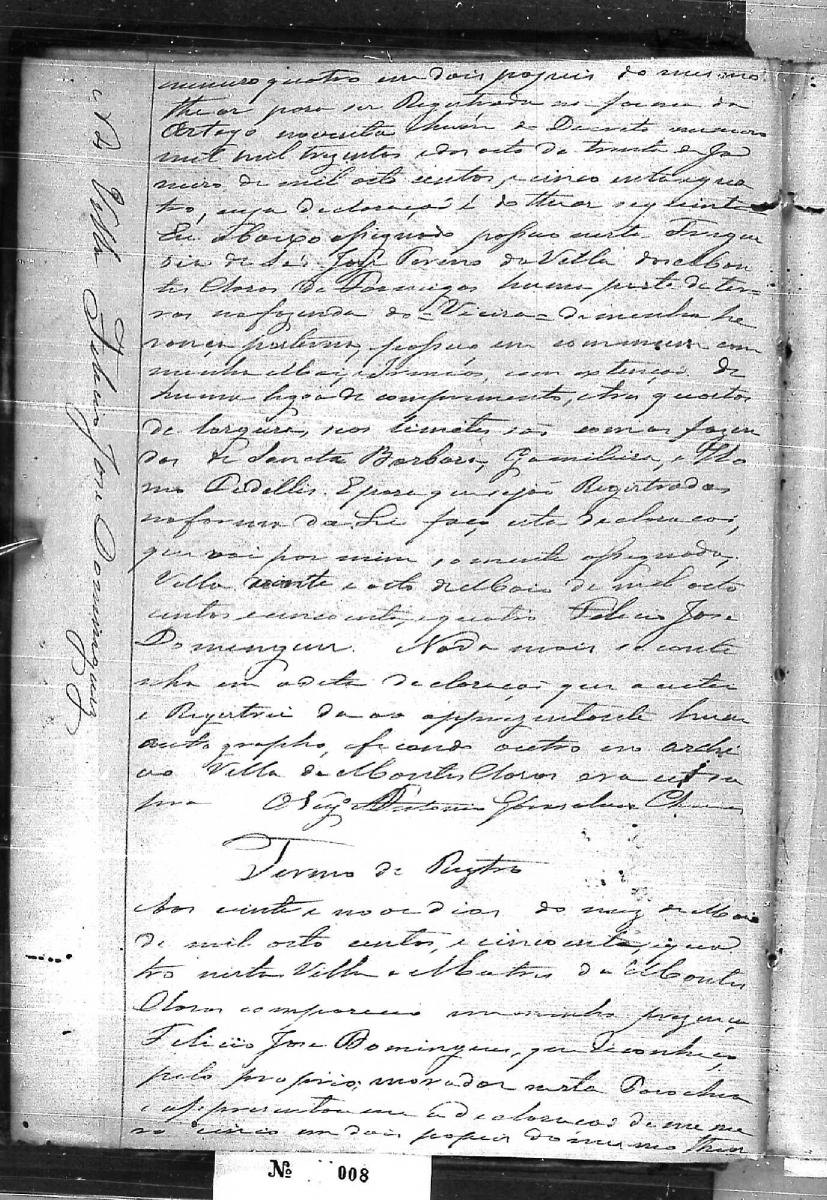 numero quatro em dois papeis do mesmo
theor para ser Registrada na forma do
Artigo noventa e hum do Decreto numero
mil trezentos e dos oito de trinta de Ja
neiro de mil oito centos, e cincoenta e qua
tro, cuja declaração é do theor seguinte
Eu abaixo assignado possuo nesta Fregue
sia de São José Termo da Villa de Mon
tes Claros de Formigas huma parte de ter
ras na fazenda do = Vieira = de minha he
rança paterna, possuo em commum com
minha Mai, e Irmãos, com extenção de
huma legoa de comprimento, e tres quartos
de largura, nos limites são com as fazen
das de Sancta Barbara, Gamilleira, e
Epara que sejão Registradas
na forma da Lei faço esta declaração,
que vai por mim somente assignada,
Villa vinte e oito de Maio de mil oito
centos e cincoenta, e quatro Felicio José
Domingues. Nada mais se conti
nha em a dita declaração que aceitei
e Registrei dando ao appresentante hum
autographo, e ficando outro no archi
vo Villa de Montes Claros era ut su
pra O Vigº Antonio Gonsalves Chaves
Termo de Registro
Aos vinte e nove dias do mez de Maio
de mil oito centos, e cincoenta, e qua
tro nesta Villa e Matris de Montes
Claros compareceo em minha prezença
Felicio José Domingues, que reconheço
pelo proprio, morador nesta Parochia
e appresentou me a declaração de nume
ro cinco em dois papeis do mesmo theor
Villa Felicio José Domingues
Nº 008